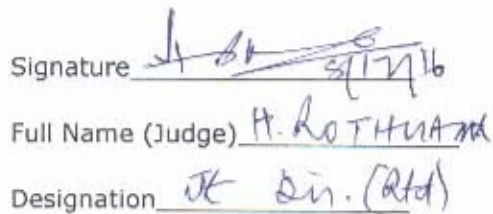 Signature
8/12/16
Full Name (Judge) H. ROTHUAMA
Designation Jt Dir. (Rtd)